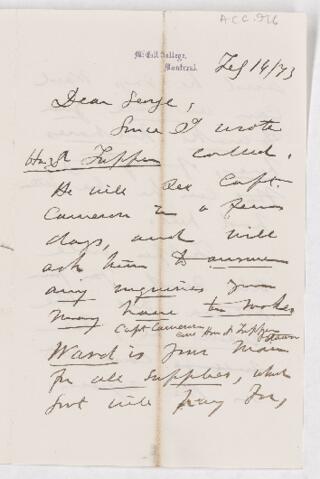 ACC. 926
McGill College,
Montreal.
Feb 14/73
Dear George,
Since I wrote
Hon. Dr Tupper called.
He will see Capt.
Cameron in a few
days, and will
ask him to answer
any inquiries you
may have to make
Capt Cameron
Hon Dr Tupper
Ward is your man
for all supplies, which
Govt will pay for,